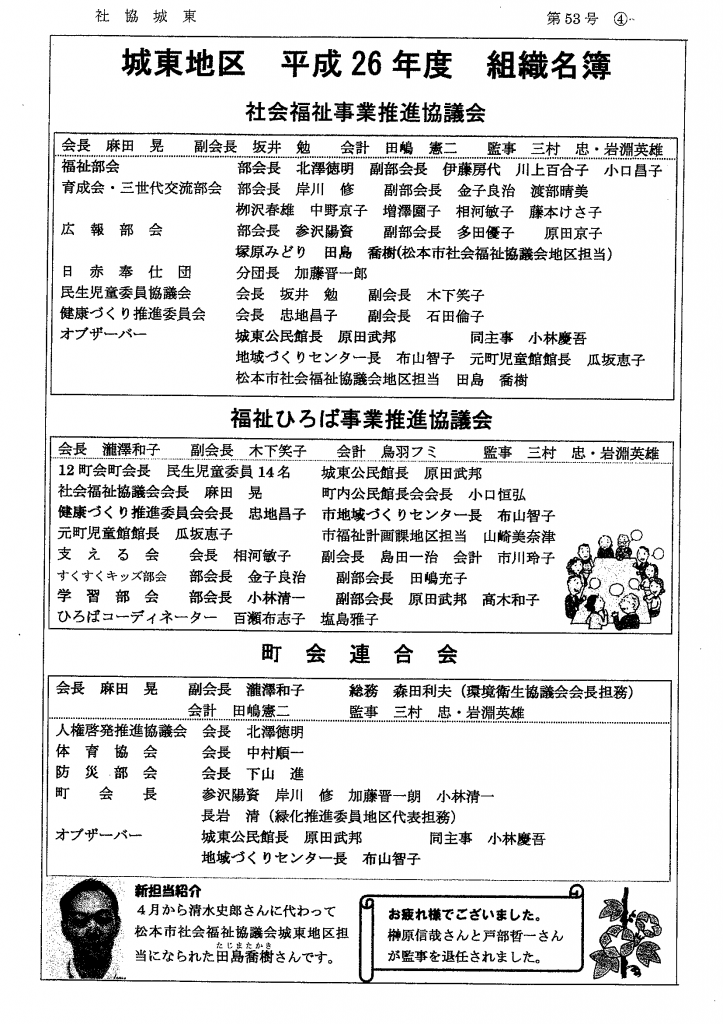 社協城東
第53号 ④
城東地区 平成26年度 組織名簿
社会福祉事業推進協議会
会長 麻田 晃 副会長 坂井 勉 会計 田嶋 憲二 監事 三村 忠・岩淵英雄
福祉部会 部会長 北澤徳明 副部会長 伊藤房代 川上百合子 小口昌子
育成会・三世代交流部会 部会長 岸川 修 副部会長 金子良治 渡部晴美
栁沢春雄 中野京子 増澤園子 相河敏子 藤本けさ子
広報部会 部会長 参沢陽資 副部会長 多田優子 原田京子
塚原みどり 田島 喬樹(松本市社会福祉協議会地区担当)
日赤奉仕団 分団長 加藤晋一郎
民生児童委員協議会 会長 坂井 勉 副会長 木下笑子
健康づくり推進委員会 会長 忠地昌子 副会長 石田倫子
オブザーバー 城東公民館長 原田武邦 同主事 小林慶吾
地域づくりセンター長 布山智子 元町児童館館長 瓜坂恵子
松本市社会福祉協議会地区担当 田島 喬樹
福祉ひろば事業推進協議会
会長 瀧澤和子 副会長 木下笑子 会計 鳥羽フミ 監事 三村 忠・岩淵英雄
12町会町会長 民生児童委員14名 城東公民館長 原田武邦
社会福祉協議会会長 麻田 晃 町内公民館長会会長 小口恒弘
健康づくり推進委員会会長 忠地昌子 市地域づくりセンター長 布山智子
元町児童館館長 瓜坂恵子 市福祉計画課地区担当 山崎美奈津
支える会 会長 相河敏子 副会長 島田一治 会計 市川玲子
すくすくキッズ部会 部会長 金子良治 副部会長 田嶋充子
学習部会 部会長 小林清一 副部会長 原田武邦 高木和子
ひろばコーディネーター 百瀬布志子 塩島雅子
町会連合会
会長 麻田 晃 副会長 瀧澤和子 総務 森田利夫(環境衛生協議会会長担務)
会計 田嶋憲二 監事 三村 忠・岩淵英雄
人権啓発推進協議会 会長 北澤徳明
体育協会 会長 中村順一
防災部会 会長 下山 進
町会長 参沢陽資 岸川 修 加藤晋一朗 小林清一
長岩 清(緑化推進委員地区代表担務)
オブザーバー 城東公民館長 原田武邦 同主事 小林慶吾
地域づくりセンター長 布山智子
新担当紹介
4月から清水史郎さんに代わって
松本市社会福祉協議会城東地区担
当になられた田島喬樹さんです。
たじまたかき
お疲れ様でございました。
榊原信哉さんと戸部哲一さん
が監事を退任されました。